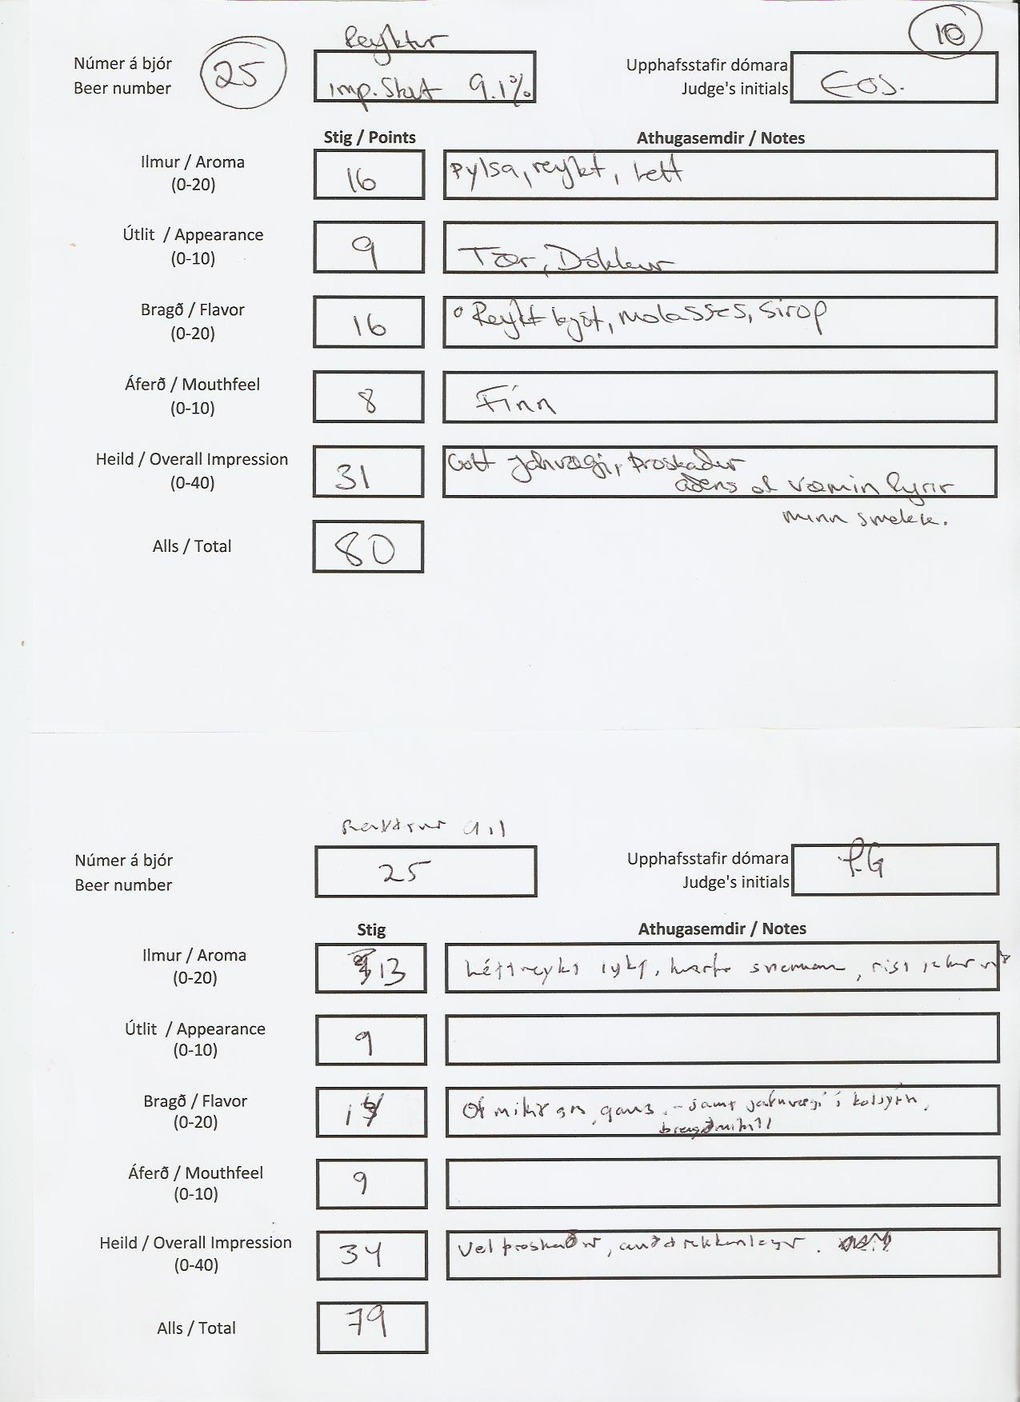 Reyktur
10
Númer á bjór
Beer number
25
Imp. Stout 9.1%
Upphafsstafir dómara
Judge's initials
EOS.
Stig / Points
Athugasemdir / Notes
Ilmur / Aroma
(0-20)
16
Pylsa, reykt, létt
Útlit / Appearance
(0-10)
9
Tær, Dökkur
Bragð / Flavor
(0-20)
16
Reykt kjöt, molasses, sirop
Áferð / Mouthfeel
(0-10)
8
Fínn
Heild / Overall Impression
(0-40)
31
Gott jafnvægi, þroskaður
aðeins of væminn fyrir
minn smekk.
Alls / Total
80
9,1
Númer á bjór
Beer number
25
Upphafsstafir dómara
Judge's initials
Stig
Athugasemdir / Notes
Ilmur / Aroma
(0-20)
13
Léttreykt lykt,
Útlit / Appearance
(0-10)
9
Bragð / Flavor
(0-20)
Of mikið gos, - samt jafnvægi í kolsýru,
bragðmikill
Áferð / Mouthfeel
(0-10)
9
Heild / Overall Impression
(0-40)
34
Vel þroskaður, auðdrekkanlegur.
Alls / Total
79